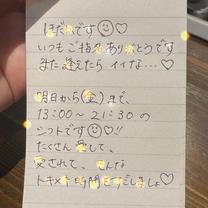 です☺♡
いつもご指名ありがとうです
また逢えたらイイな…♡
明日から(金)まで、
13:00〜21:30の
シフトです☺♡!!
たくさん愛して、
愛されて、
トキメキ時間すごしましょ♡